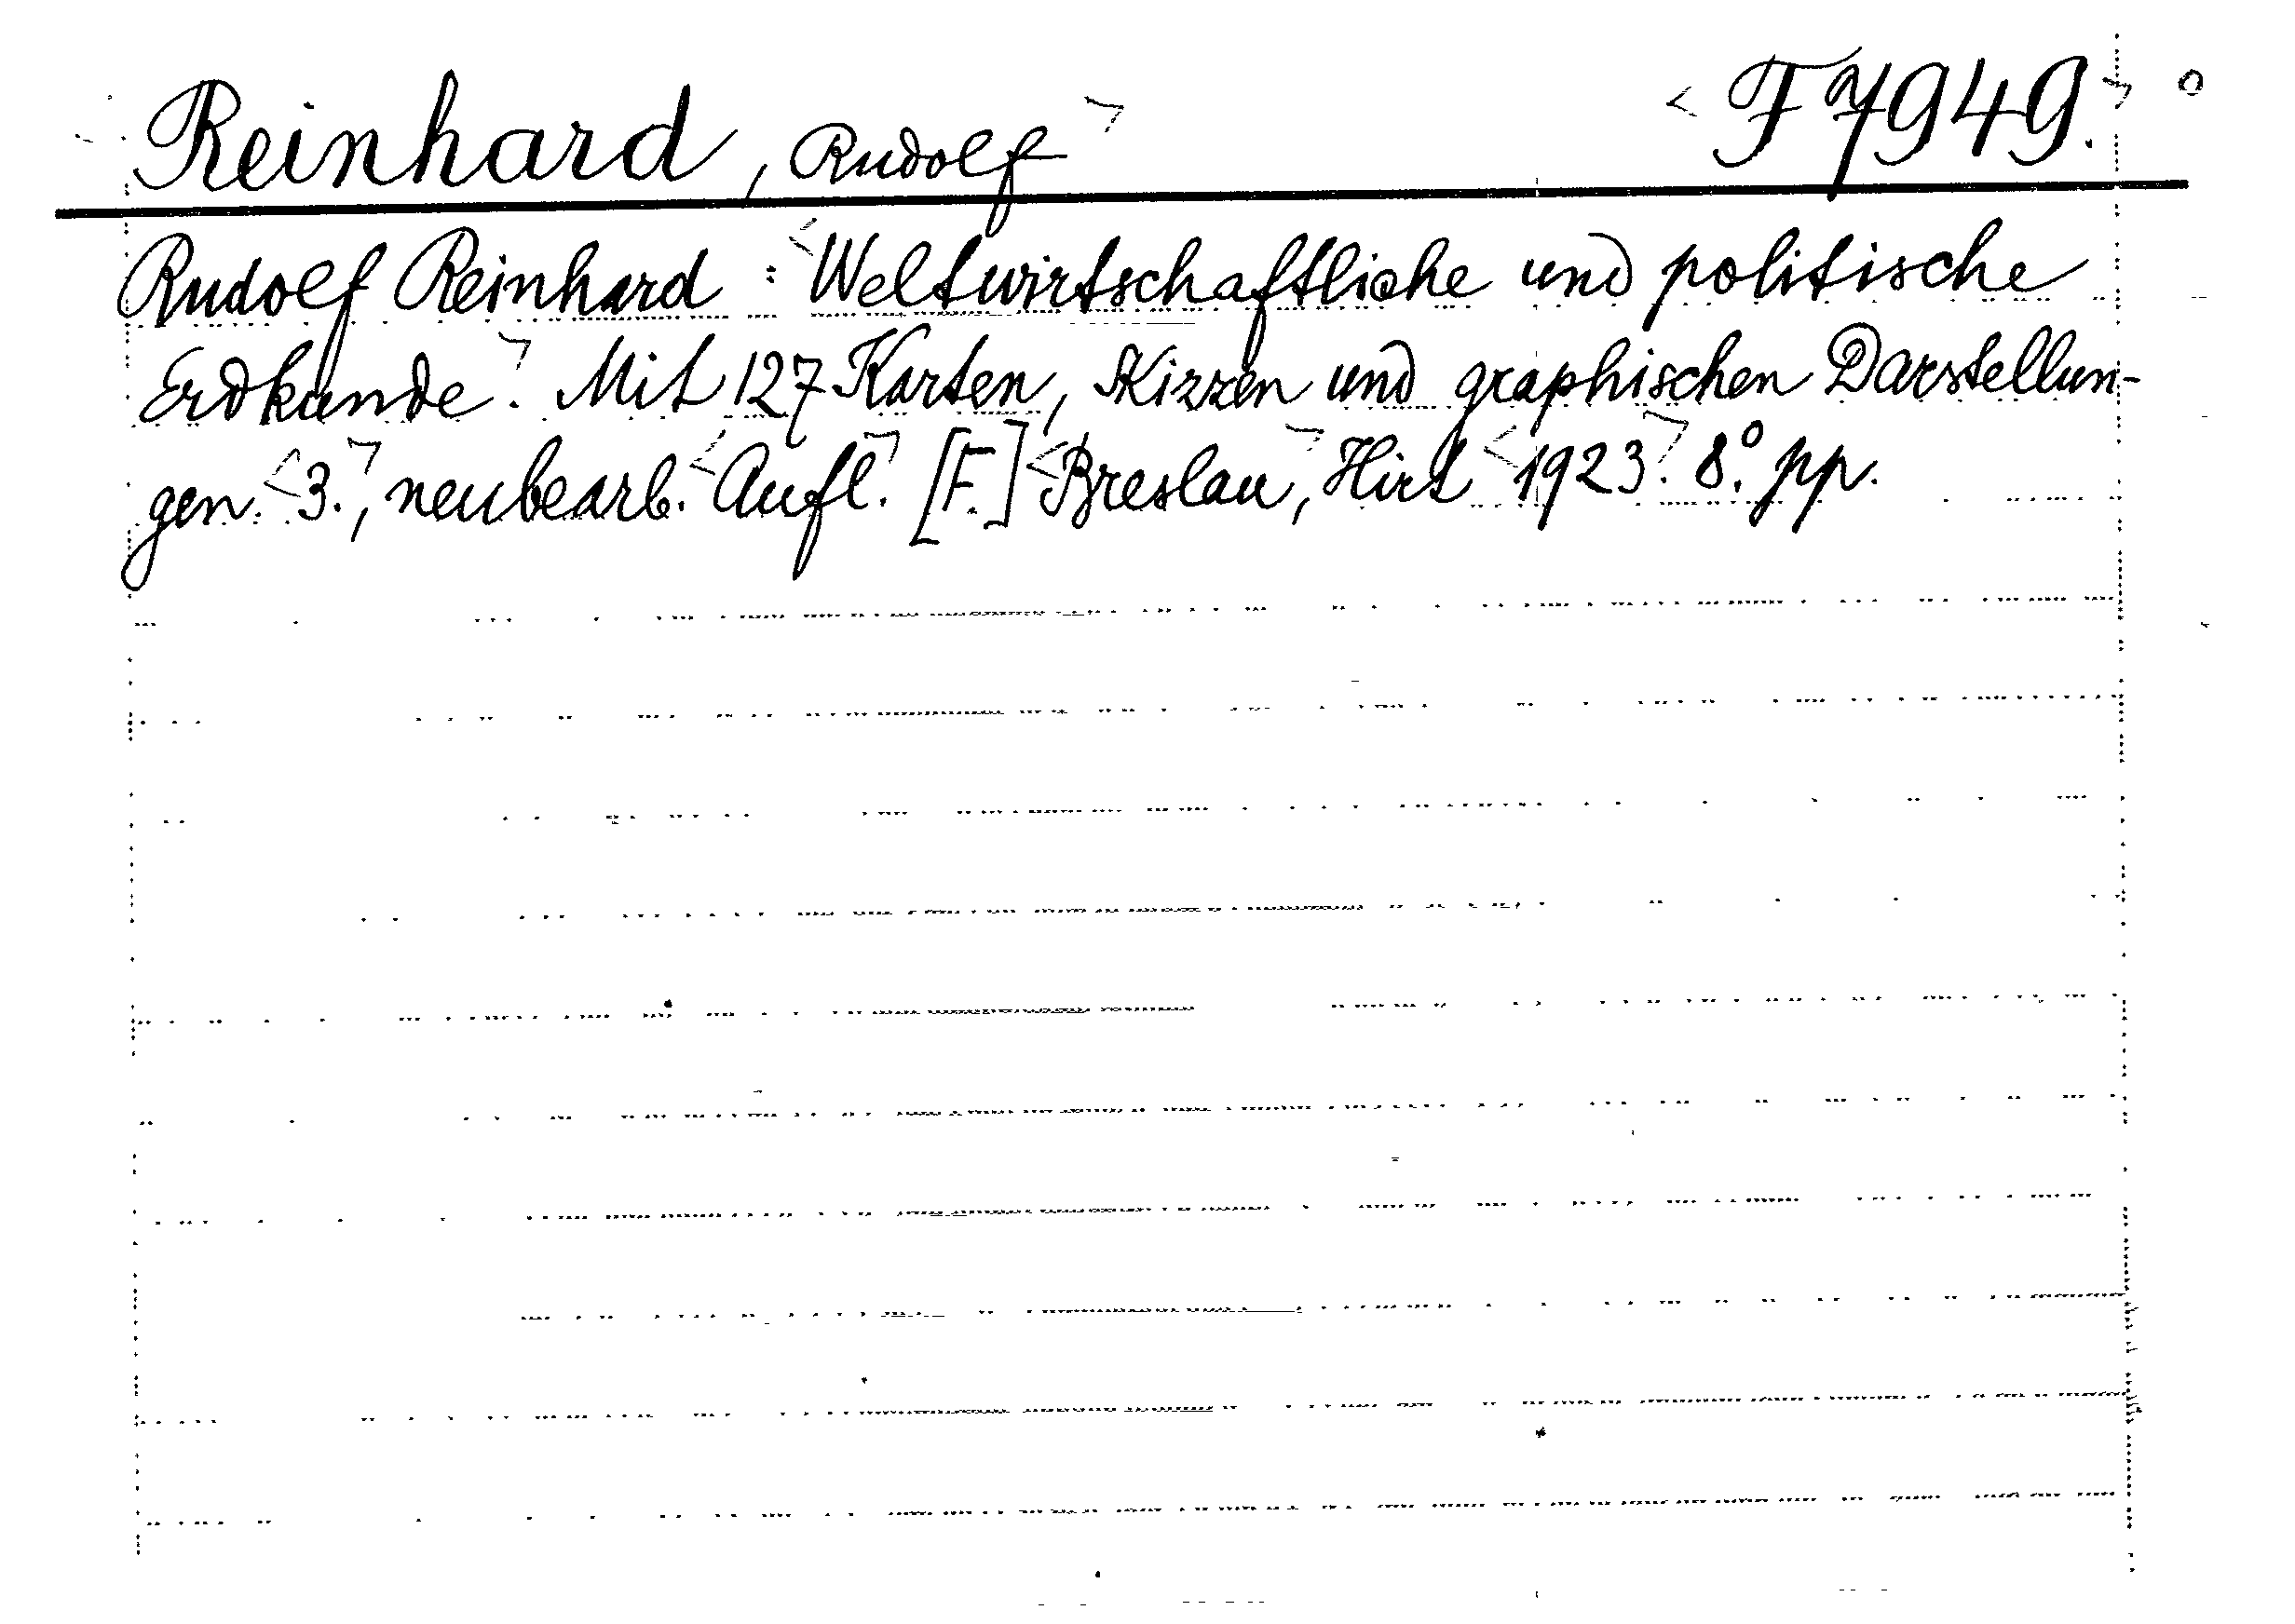 Reinhard, Rudolf F 7949.
Rudolf Reinhard: Weltwirtschaftliche und politische
Erdkunde. Mit 127 Karten, Skizzen und graphischen Darstellun-
gen. 3., neubearb. Aufl. [F.] Breslau, Hirt 1923. 8°. pp.